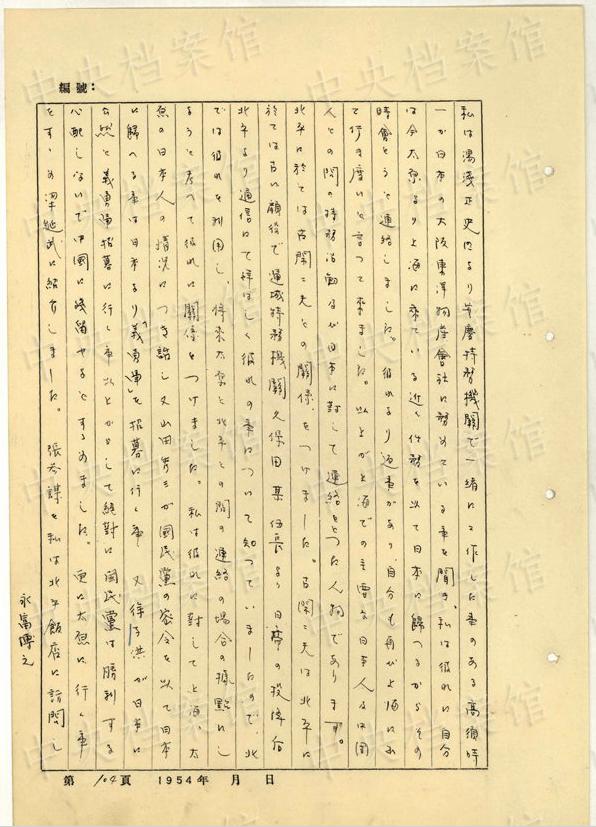 編號：
私は湯浅正史内より安慶特務機関で一緒に工作した事のある高須時
一が日本の大阪東洋物産會社に務めている事を聞き、私は彼れに自分
は今太原より上海に来ている近く任務を以て日本に歸つるからその
時會をうと連絡しました。彼れより返書があり、自分も再び上海に出
て行き度いと言つて来ました。以上が上海での主要な日本人又は国
人との間の特務活動及び日本に対して連絡をとつた人物であります。
北平に於ては古閑二夫との関係をつけました。古閑二夫は北平に
於ては古い顔役で運城特務機関久保田某伍長より日帝の投降后
北平より通信にて拝はしく彼れの事について知つていましたので、北
では彼れを利用し、将来太原と北平との間の連絡の場合の據點にし
ようと考へて彼れに関係をつけました。私は彼れに対して上海、太
原の日本人の情況につき話し又山田 が國民黨の密令を以て日本
に歸へる事は日本より「義勇軍」を招募に行く事 又徐 洪が日本に
公然と義勇軍招募に行く事以上からして絶対に國民黨は勝利する
心配しないで中國に残留せることすゝめました。更に太原に行く事
をすゝめ梁延武に紹介しました。 張参謀を私は北平飯店に訪問し
永富博之
第 104 頁 1954年 月 日
中央档案馆